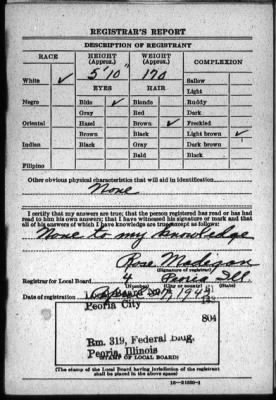 REGISTRAR'S REPORT
DESCRIPTION OF REGISTRANT
RACE HEIGHT (Approx.) WEIGHT (Approx.) COMPLEXION
White ✓ 5' 10" 170 Sallow
EYES HAIR Light
Negro Blue ✓ Blonde Ruddy
Gray Red Dark
Oriental Hazel Brown ✓ Freckled
Brown Black Light brown ✓
Indian Black Gray Dark brown
Bald Black
Filipino
Other obvious physical characteristics that will aid in identification
None
I certify that my answers are true; that the person registered has read or has had
read to him his own answers; that I have witnessed his signature or mark and that
all of his answers of which I have knowledge are true, except as follows:
None to my knowledge
Rose Madigan
(Signature of registrar)
Registrar for Local Board 4 Peoria Ill.
(Number) (City or county) (State)
Date of registration
Peoria City
804
Rm. 319, Federal Bldg.
Peoria, Illinois
(STAMP OF LOCAL BOARD)
(The stamp of the Local Board having jurisdiction of the registrant
shall be placed in the above space)